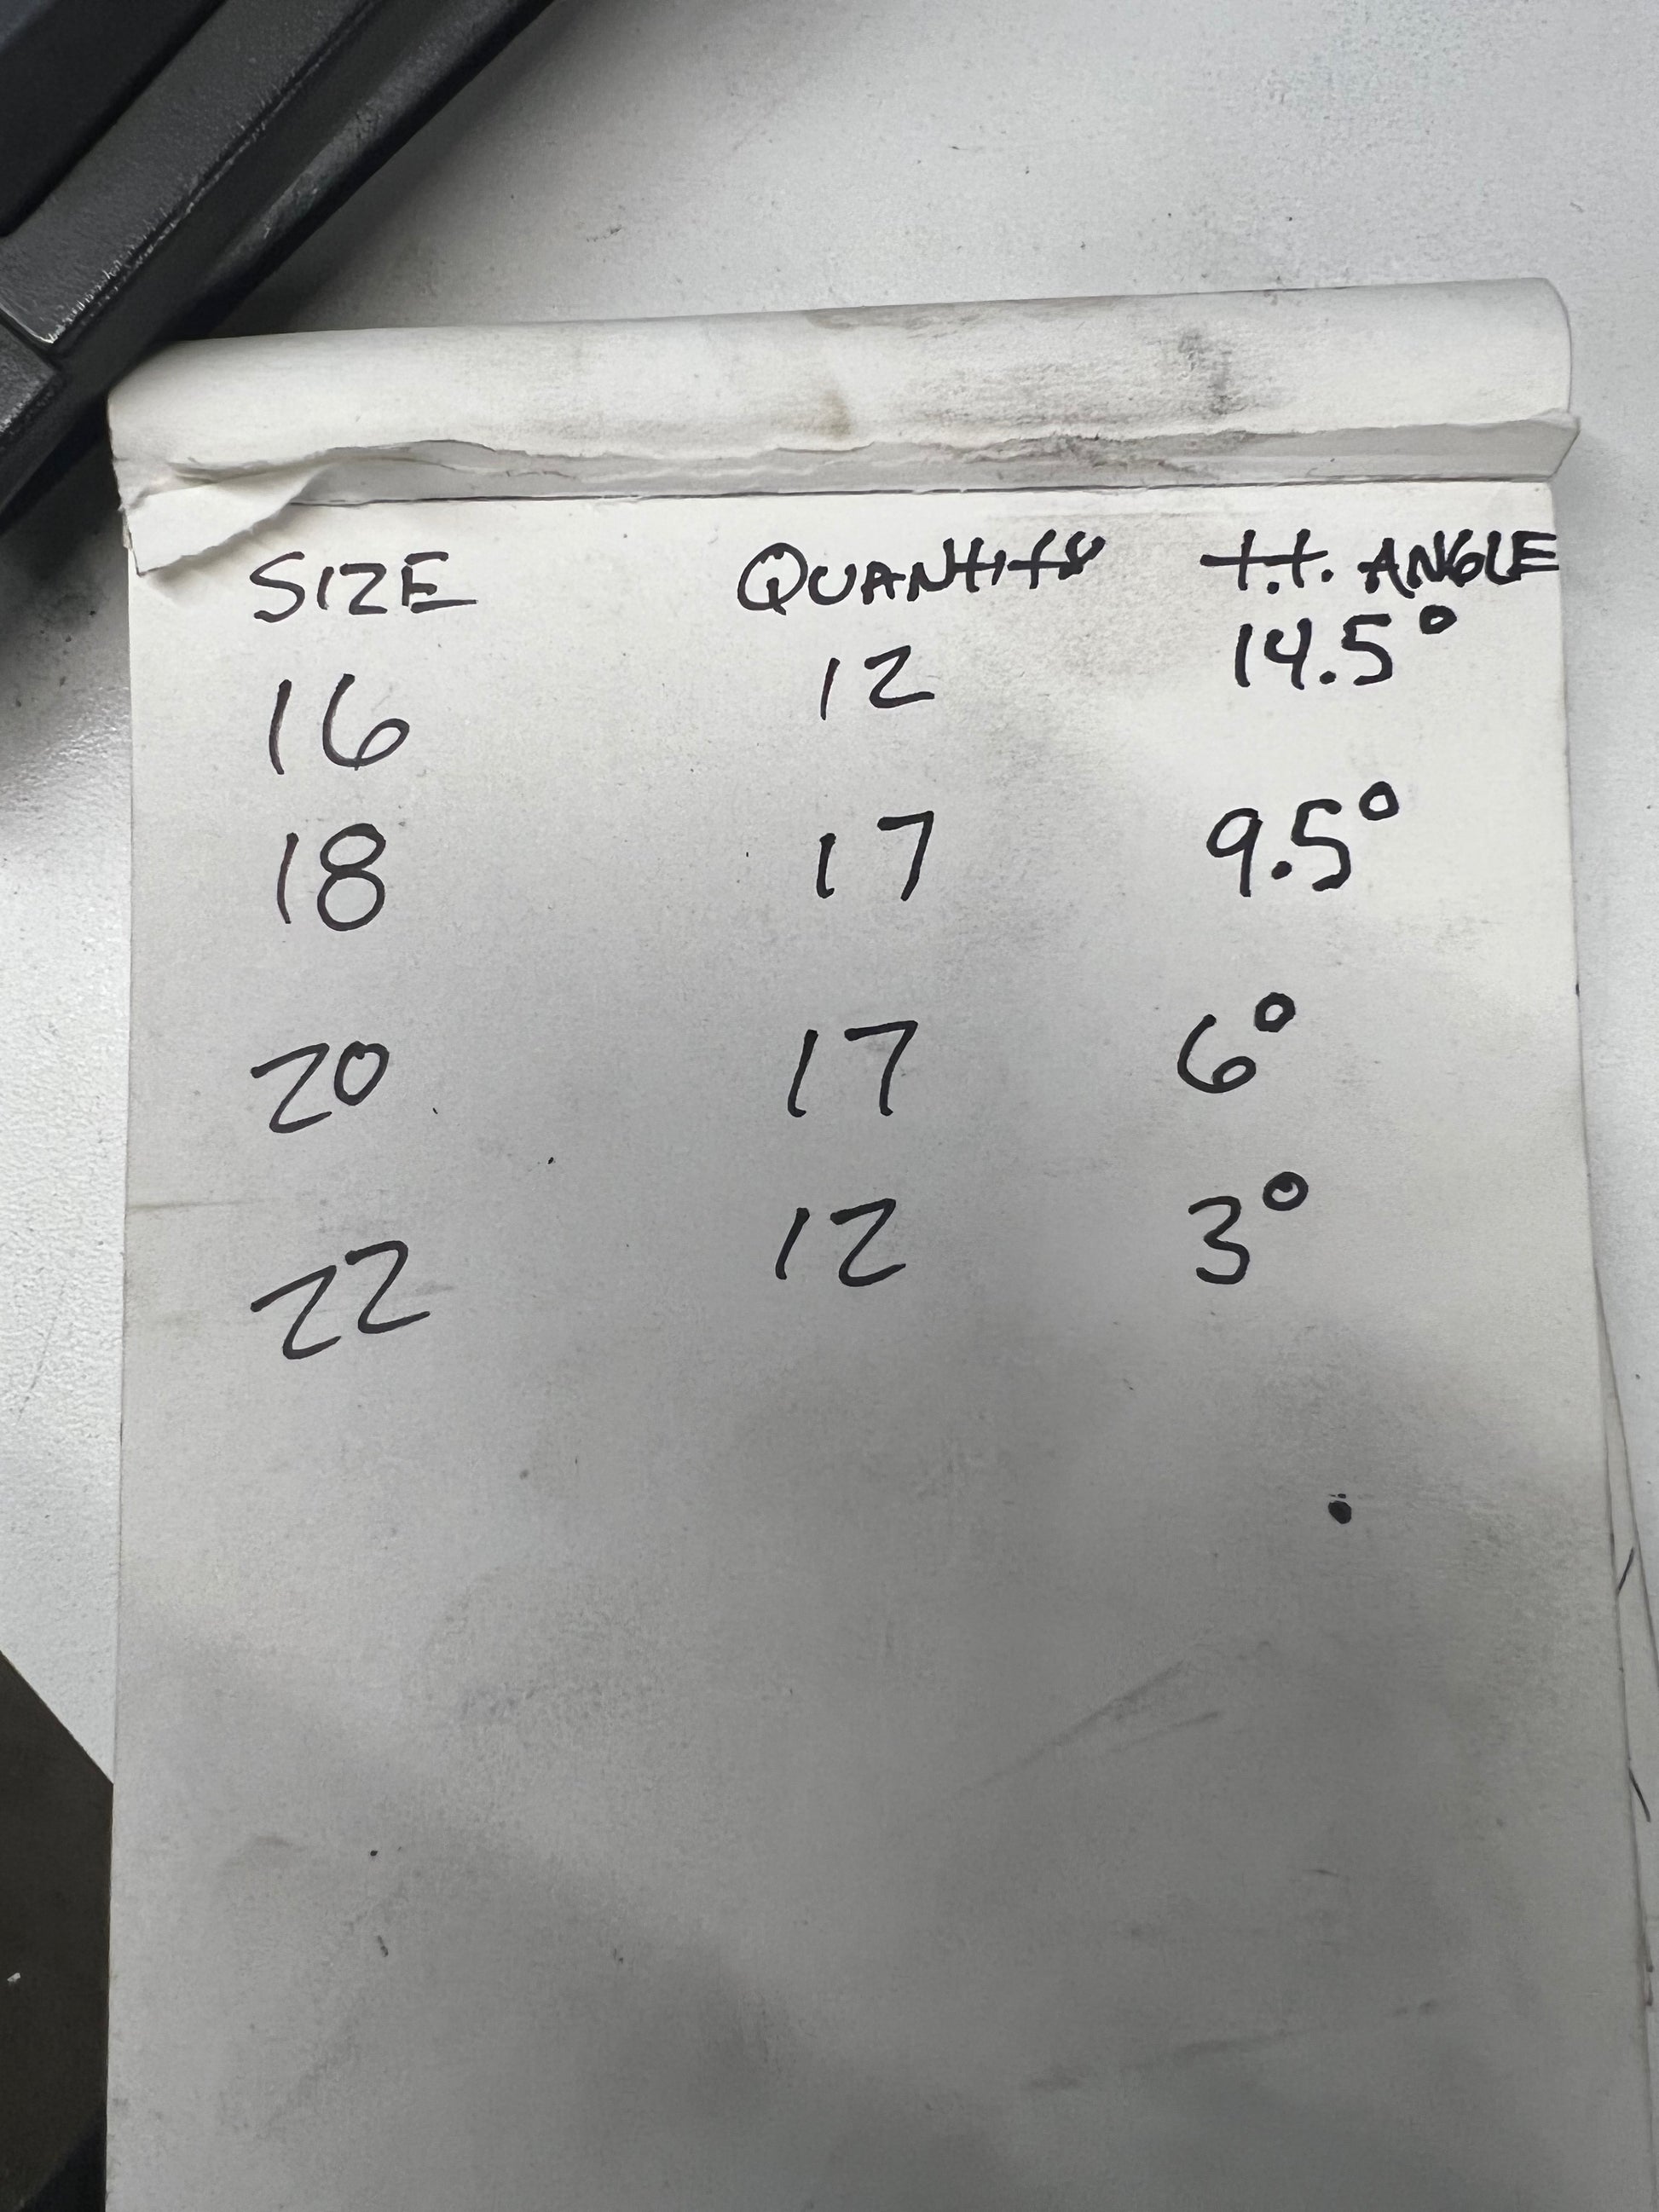 SIZE QUANtity t.t. ANGLE
16 12 14.5°
18 17 9.5°
20 17 6°
22 12 3°